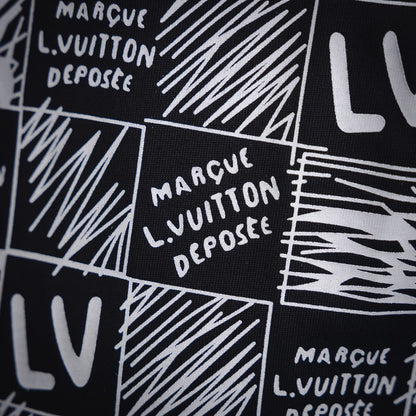 MARÇUE
L.VUITTON
DEPOSÉE
LV
MARÇUE
L.VUITTON
DEPOSÉE
LV
MARÇUE
L.VUITTON
DEPOSÉE